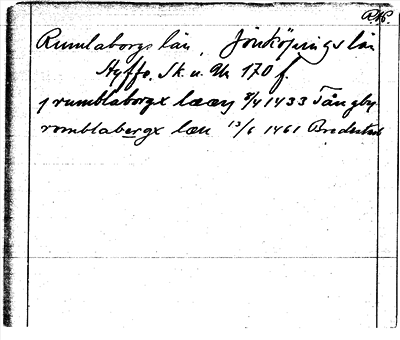 RAP.
Rumlaborgs län, Jönköpings län
Hyffo. Sk. u. Uk 170 f.
j rumblaborgx lææn 8/4 1433 Tångby
romblabergx læn 13/6 1461 Bredestad